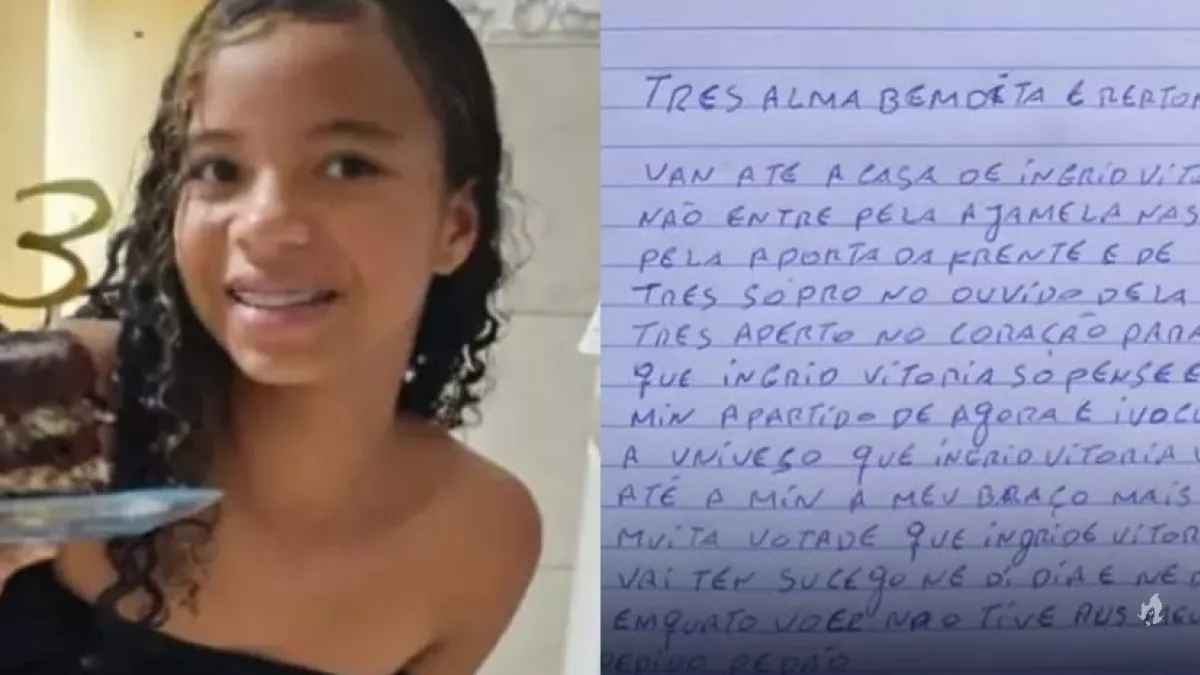 3
TRES ALMA BEMDITA E RERTOR
VAN ATÉ A CASA DE INGRID VITO
NÃO ENTRE PELA A JAMELA NAS
PELA A PORTA DA FRENTE E DE
TRES SOPRO NO OUVIDO DELA
TRES APERTO NO CORAÇÃO PARA
QUE INGRID VITORIA SO PENSE E
MIN APARTIDO DE AGORA E IVOC
A UNIVESO QUE INGRID VITORIA V
ATÉ A MIN A MEU BRAÇO MAIS
MUITA VOTADE QUE INGRIDE VITOR
VAI TER SUCEGO NE DI DIA E NE D
EMQUATO VOER NAO TIVE AUS MEU
PEDIDO PEDRÃO